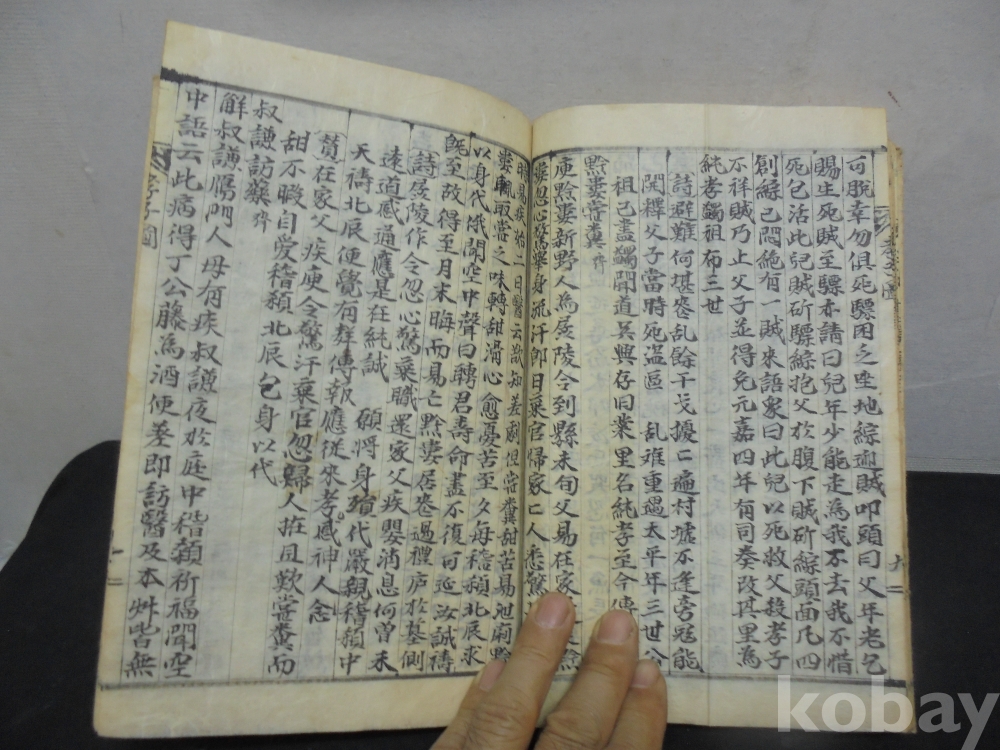 可脫幸勿俱死驃困乏坐地綜迎賊叩頭曰父年老乞
賜生死賊至驃亦請曰兒年少能走爲我不去我不惜
死乞活此兒賊斫驃綜抱父於腹下賊斫綜頭面凡四
創綜已悶絕有一賊來語衆曰此兒以死救父殺孝子
不祥賊乃止父子並得免元嘉四年有司奏改其里爲
純孝蠲祖布三世
詩避難何堪喪乱餘干戈擾〻遍村墟不逢旁冦能
閔釋父子當時死盜區 乱难重遇太平年三世
祖已盡蠲閭道吳興存旧業里名純孝至今傳
黔婁嘗糞 齊
庾黔婁新野人爲孱陵令到縣未旬父易在家 黔
婁忽心驚舉身流汗即日棄官歸家〻人悉驚
時易疾始二日醫云欲知差劇但嘗糞甜苦易泄痢黔
婁輒取嘗之味轉甜滑心愈憂苦至夕每稽顙北辰求
以身代俄聞空中聲曰聘君壽命盡不復可延汝誠禱
旣至故得至月末晦而易亡黔婁居喪過禮庐於墓側
詩孱陵作令忽心驚棄職還家父疾嬰消息何曾未
遠道感通應是在純誠 願將身殞代嚴親稽顙中
天禱北辰便覺有群傳報應從來孝感神人念
賛在家父疾庾令驚汗棄官忽歸人 且歎嘗糞而
甜不暇自爱稽顙北辰乞身以代
叔謙訪藥 齊
解叔謙鴈門人母有疾叔謙夜於庭中稽顙祈福聞空
中語云此病得丁公藤爲酒便差即訪醫及本艸皆無
kobay